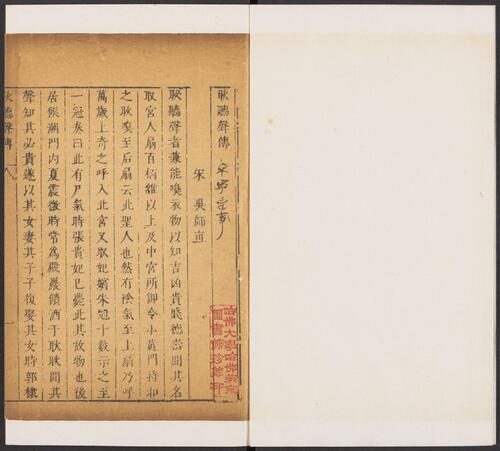 耿聽聲傳
宋 吳師直
耿聽聲者兼能嗅衣物以知吉凶貴賤德壽聞其名
取宮人扇百柄雜以上及中宮所御令小黃門持扣
之耿嗅至后扇云此聖人也然有陰氣至上扇乃呼
萬歲上奇之呼入北宮又取妃嬪朱冠十數示之至
一冠奏曰此有尸氣時張貴妃已薨此其故物也後
居候潮門內夏震微時常為殿巖饋酒于耿耿聞其
聲知其必貴遂以其女妻其子子復娶其女時郭棣
耿聽聲傳
一
哈佛大學哈佛燕京
圖書館珍藏印